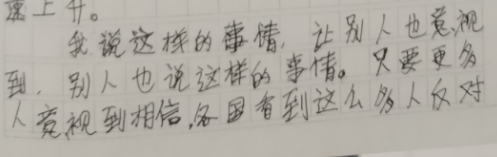 速上升。
我说这样的事情，让别人也意视
到，别人也说这样的事情。只要更多
人意视到相信，各国看到这么多人反对